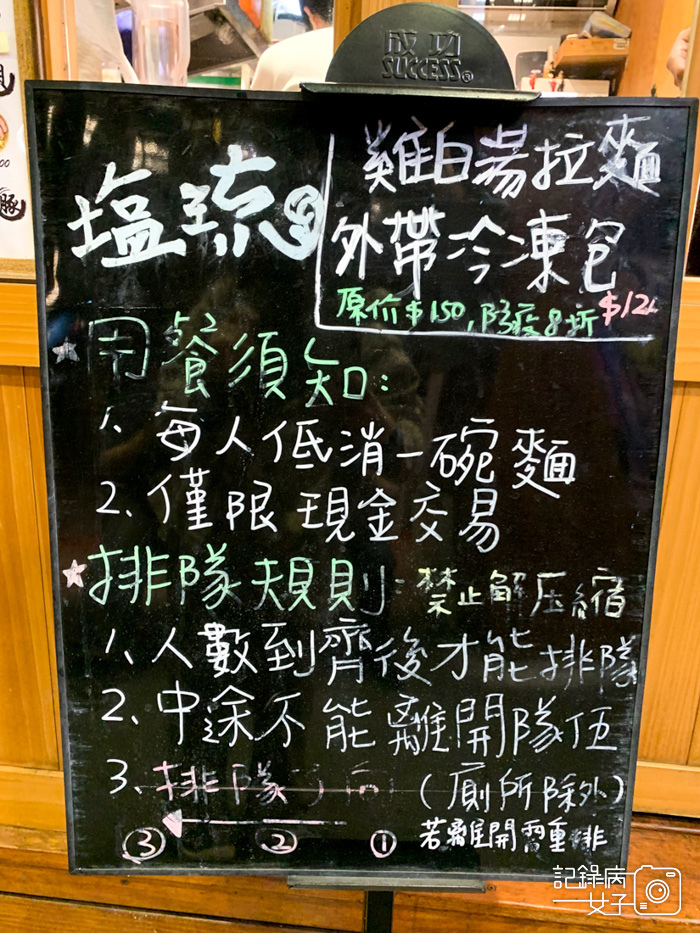 成功
SUCCESS®
塩琉
雞白湯拉麵
外帶冷凍包
原价$150,防疫8折
用餐須知:
1、每人低消一碗麵
2、僅限現金交易
排隊規則:禁止解压縮
1、人數到齊後才能排隊
2、中途不能離開隊伍
3、排隊方向
(廁所除外)
若離開需重排
③ ② ①
豚
記錄病
女子